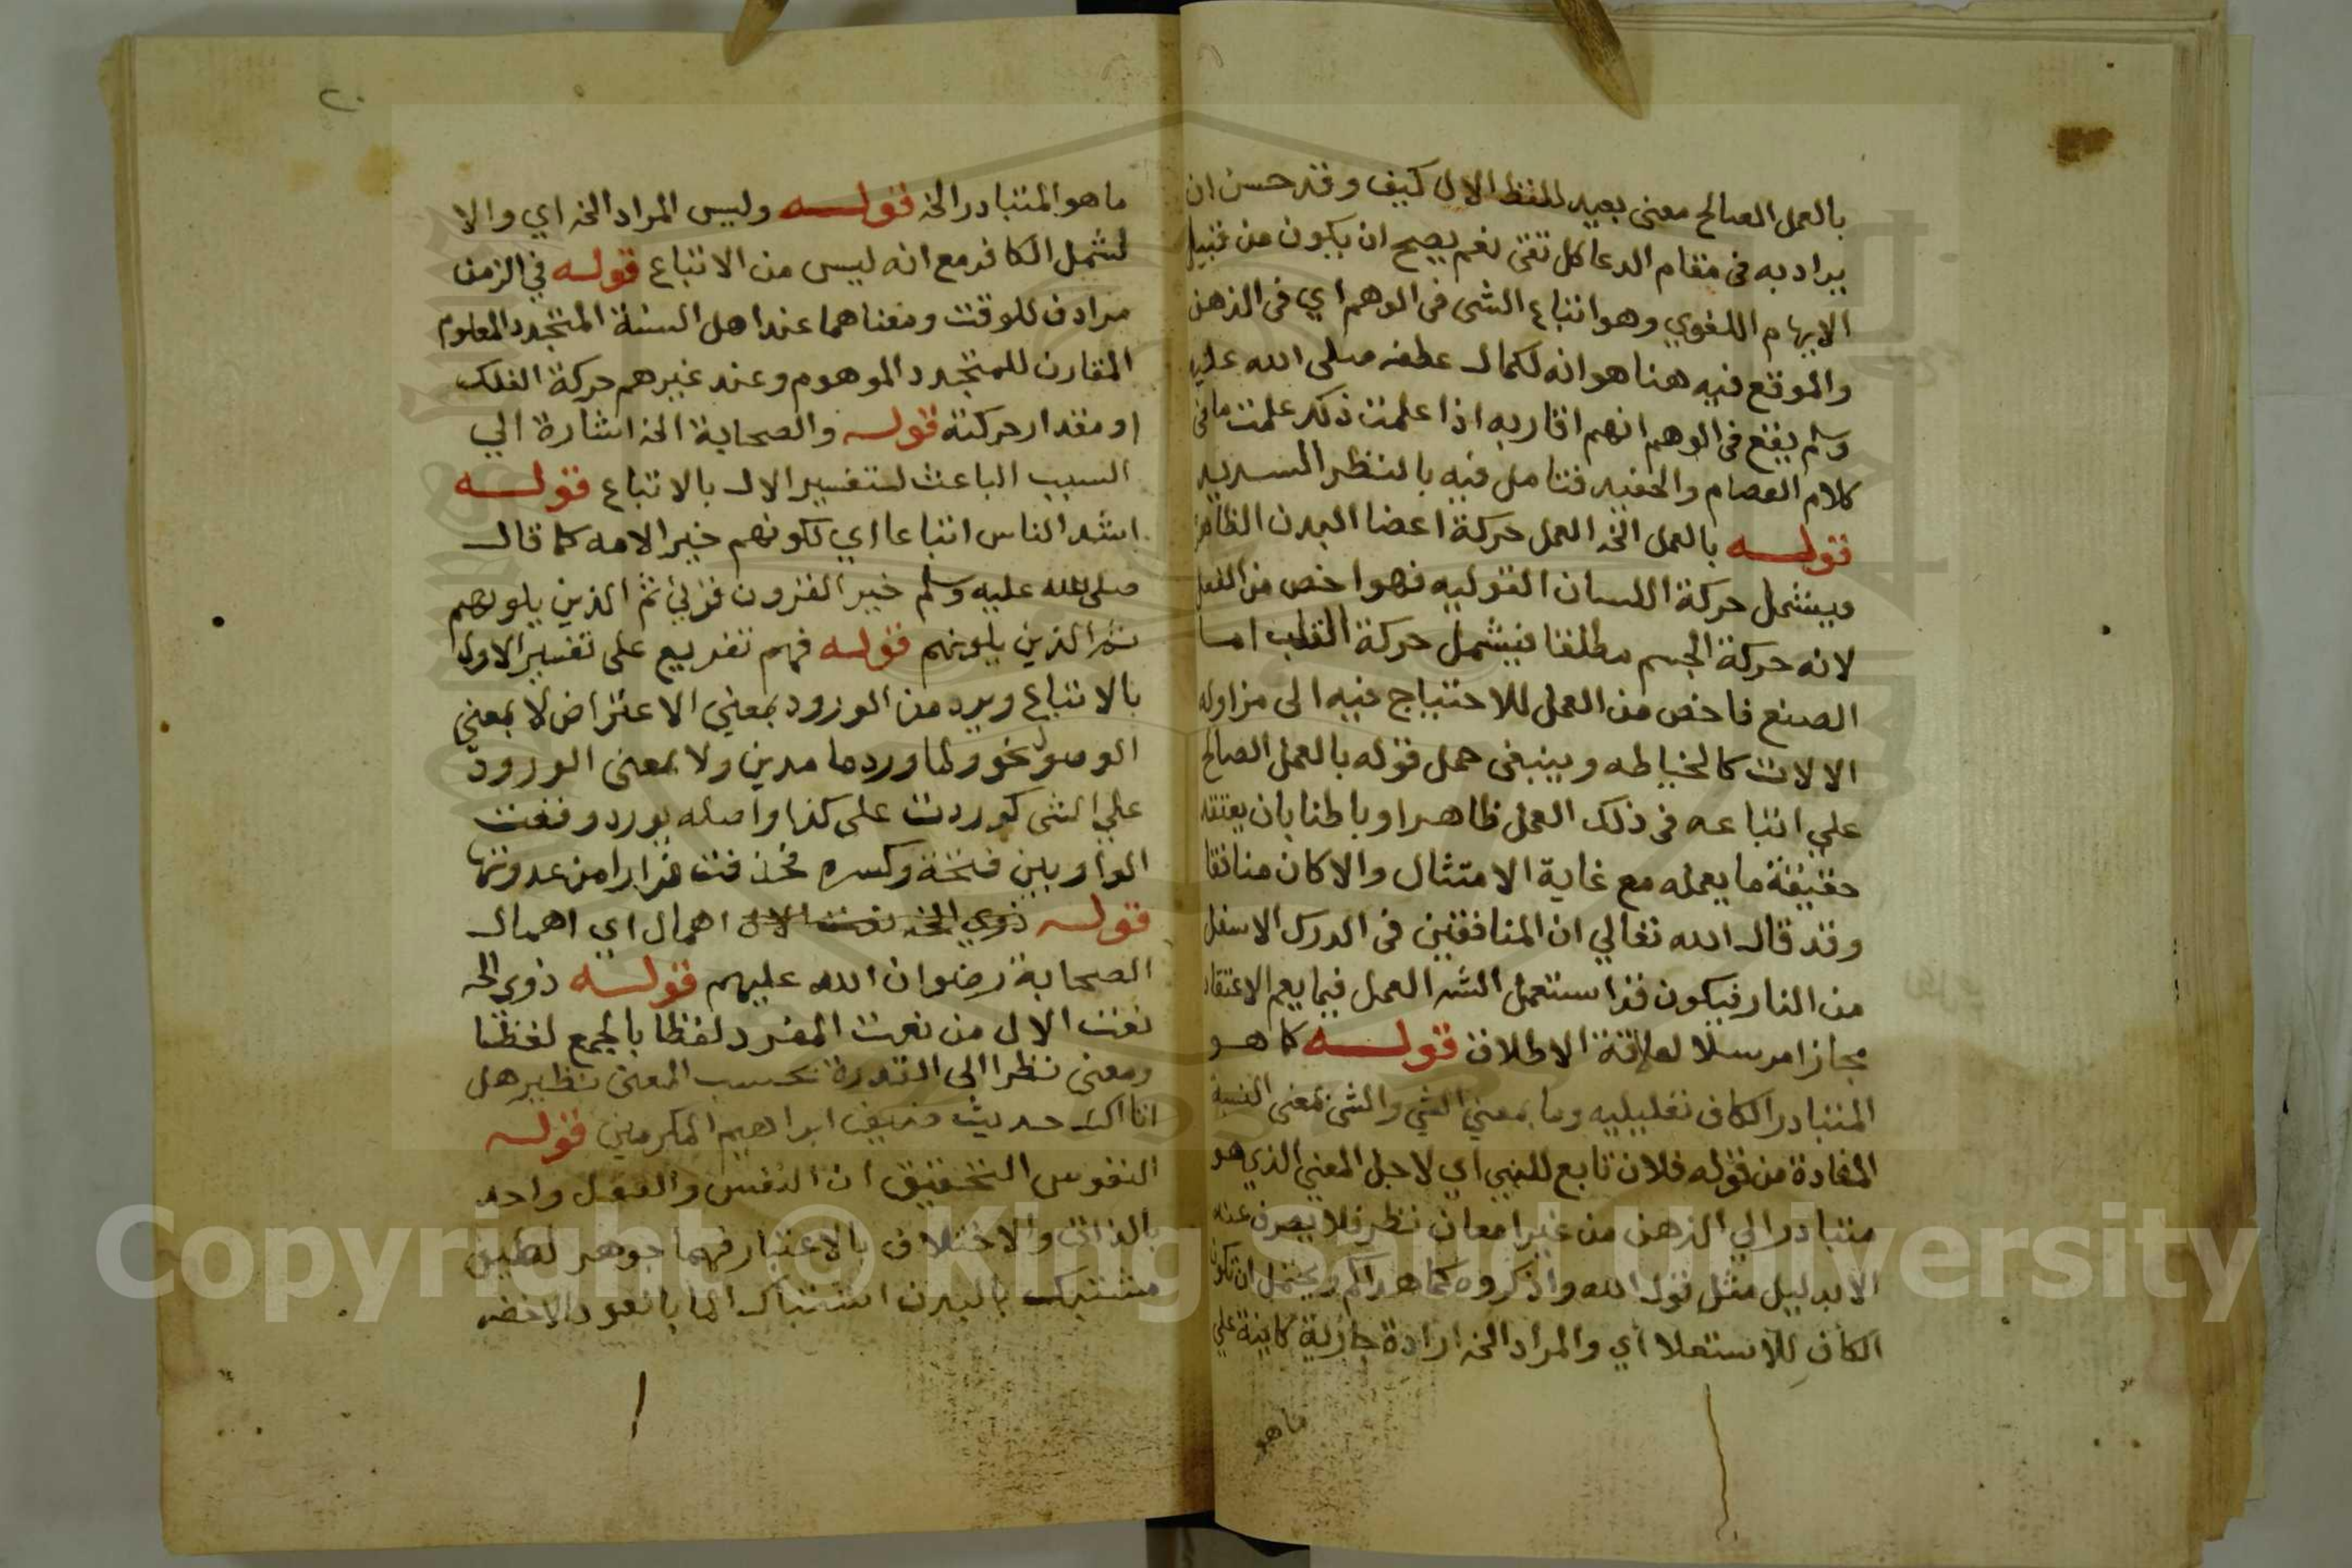 بالعمل الصالح معنى بعيد للفظ الال كيف وقد حسن ان
يراد به فى مقام الدعا كل تقى نعم يصح ان يكون من قبيل
الايهام اللغوي وهو اتباع الشى فى الوهم اي فى الذهن
والموقع فيه هنا هو انه لكمال عطفه صلى الله عليه
وسلم يقع فى الوهم انهم اقاربه اذا علمت ذلك علمت ما فى
كلام العصام والحفيد فتامل فيه بالنظر السديد
قولـــه بالعمل الخ العمل حركة اعضا البدن الظاهر
ويشمل حركة اللسان القوليه فهو اخص من الفعل
لانه حركة الجسم مطلقا فيشمل حركة القلب اما
الصنع فاخص من العمل للاحتياج فيه الى مزاوله
الالات كالخياطه وينبغى حمل قوله بالعمل الصالح
علي اتباعه فى ذلك العمل ظاهرا وباطنا بان يعتقد
حقيقة ما يعمله مع غاية الامتثال والا كان منافقا
وقد قال الله تعالي ان المنافقين فى الدرك الاسفل
من النار فيكون قد استعمل الشر العمل فيما يعم الاعتقاد
مجازا مرسلا لعلاقة الاطلاق قولـــه كما هو
المتبادر الكاف تعليليه وما بمعني الشي والشى بمعنى النسبة
المفادة من قوله فلان تابع للنبي اي لاجل المعني الذي هو
متبادر الي الذهن من غير امعان نظر فلا يصرف عنه
الا بدليل مثل قوله الله واذكروه كما هداكم ويحتمل ان تكون
الكاف للاستعلا اي والمراد الخ ارادة جارية كاينة علي
ما هو
٢٠
ما هو المتبادر الخ قولـــه وليس المراد الخ اي والا
لشمل الكافر مع انه ليس من الاتباع قوله في الزمن
مرادف للوقت ومعناهما عند اهل السنة المتجدد المعلوم
المقارن للمتجدد الموهوم وعند غيرهم حركة الفلك
او مقدار حركته قوله والصحابة الخ اشارة الي
السبب الباعث لتفسير الال بالاتباع قولـــه
اشد الناس اتباعا اي لكونهم خير الامه كما قال
صلى الله عليه وسلم خير القرون قرني ثم الذين يلونهم
ثم الذين يلونهم قوله فهم تفريع على تفسير الاول
بالاتباع ويرد من الورود بمعني الاعتراض لا بمعني
الوصول نحو ولما ورد ما مدين ولا بمعنى الورود
علي الشى كوردت على كذا واصله يورد وقعت
الواو بين فتحة وكسره فحذفت فرارا من عدوتها
قولـــه ذوي الخ نعت الال اهمال اي اهمال
الصحابة رضوان الله عليهم قولـــه ذوي الخ
نعت الال من نعت المفرد لفظا بالجمع لفظا
ومعنى نظرا الي التدرة بحسب المعنى نظير هل
اتاك حديث ضيف ابراهيم المكرمين قوله
النفوس التحقيق ان النفس والعقل واحد
بالذات والاختلاف بالاعتبار فهما جوهر لطيف
مشتبك بالبدن اشتباك الما بالعود الاخضر
Copyright © King Saud University